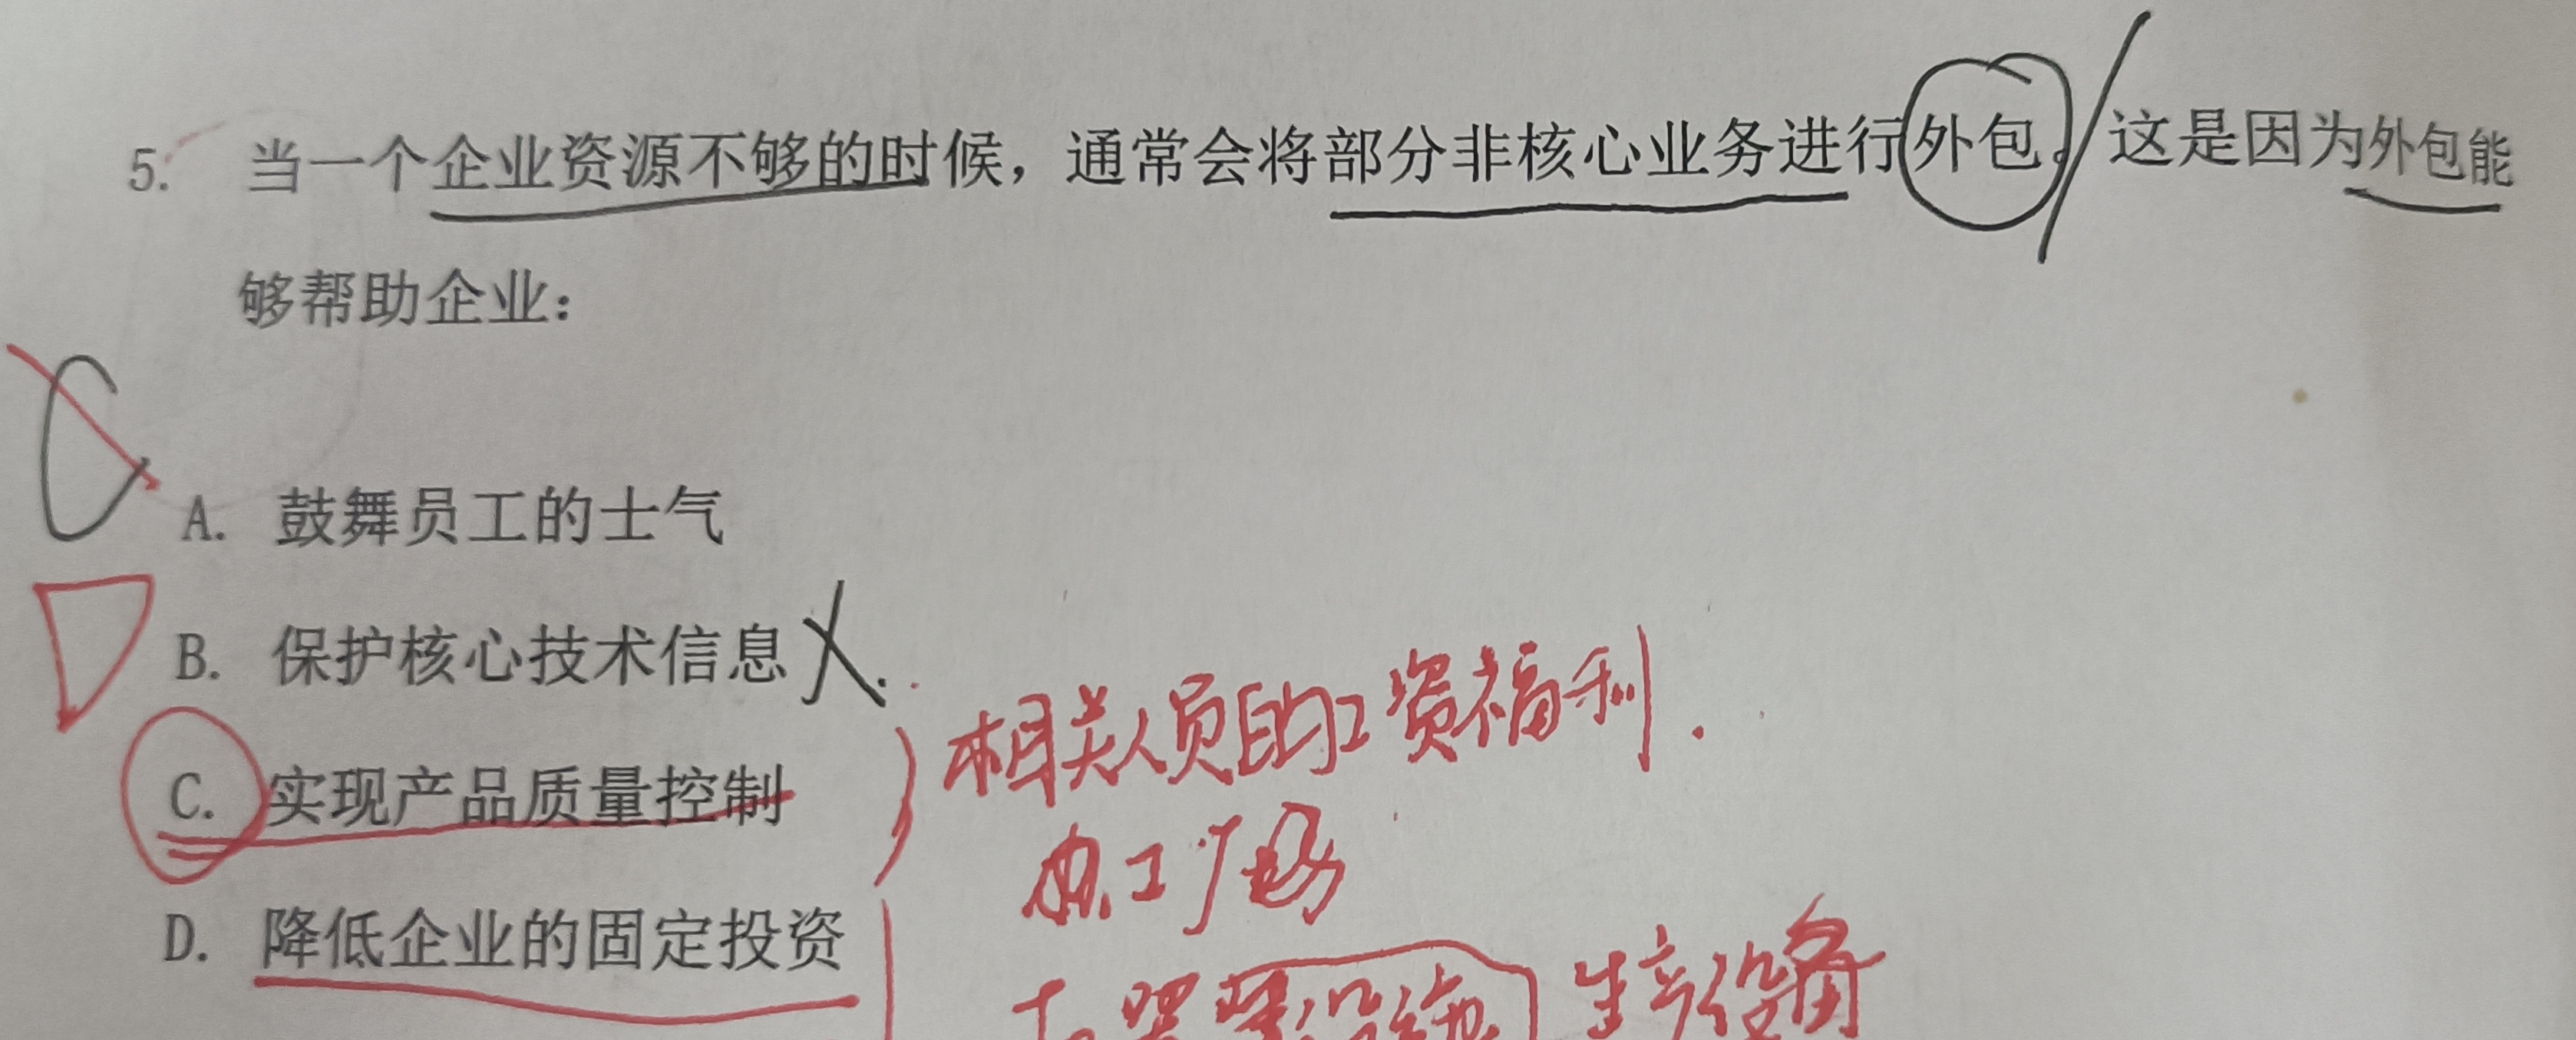 5. 当一个企业资源不够的时候，通常会将部分非核心业务进行外包。这是因为外包能
够帮助企业：
C
A. 鼓舞员工的士气
D
B. 保护核心技术信息 X.
相关人员的工资福利.
C. 实现产品质量控制
办工厂房
D. 降低企业的固定投资
生产设备